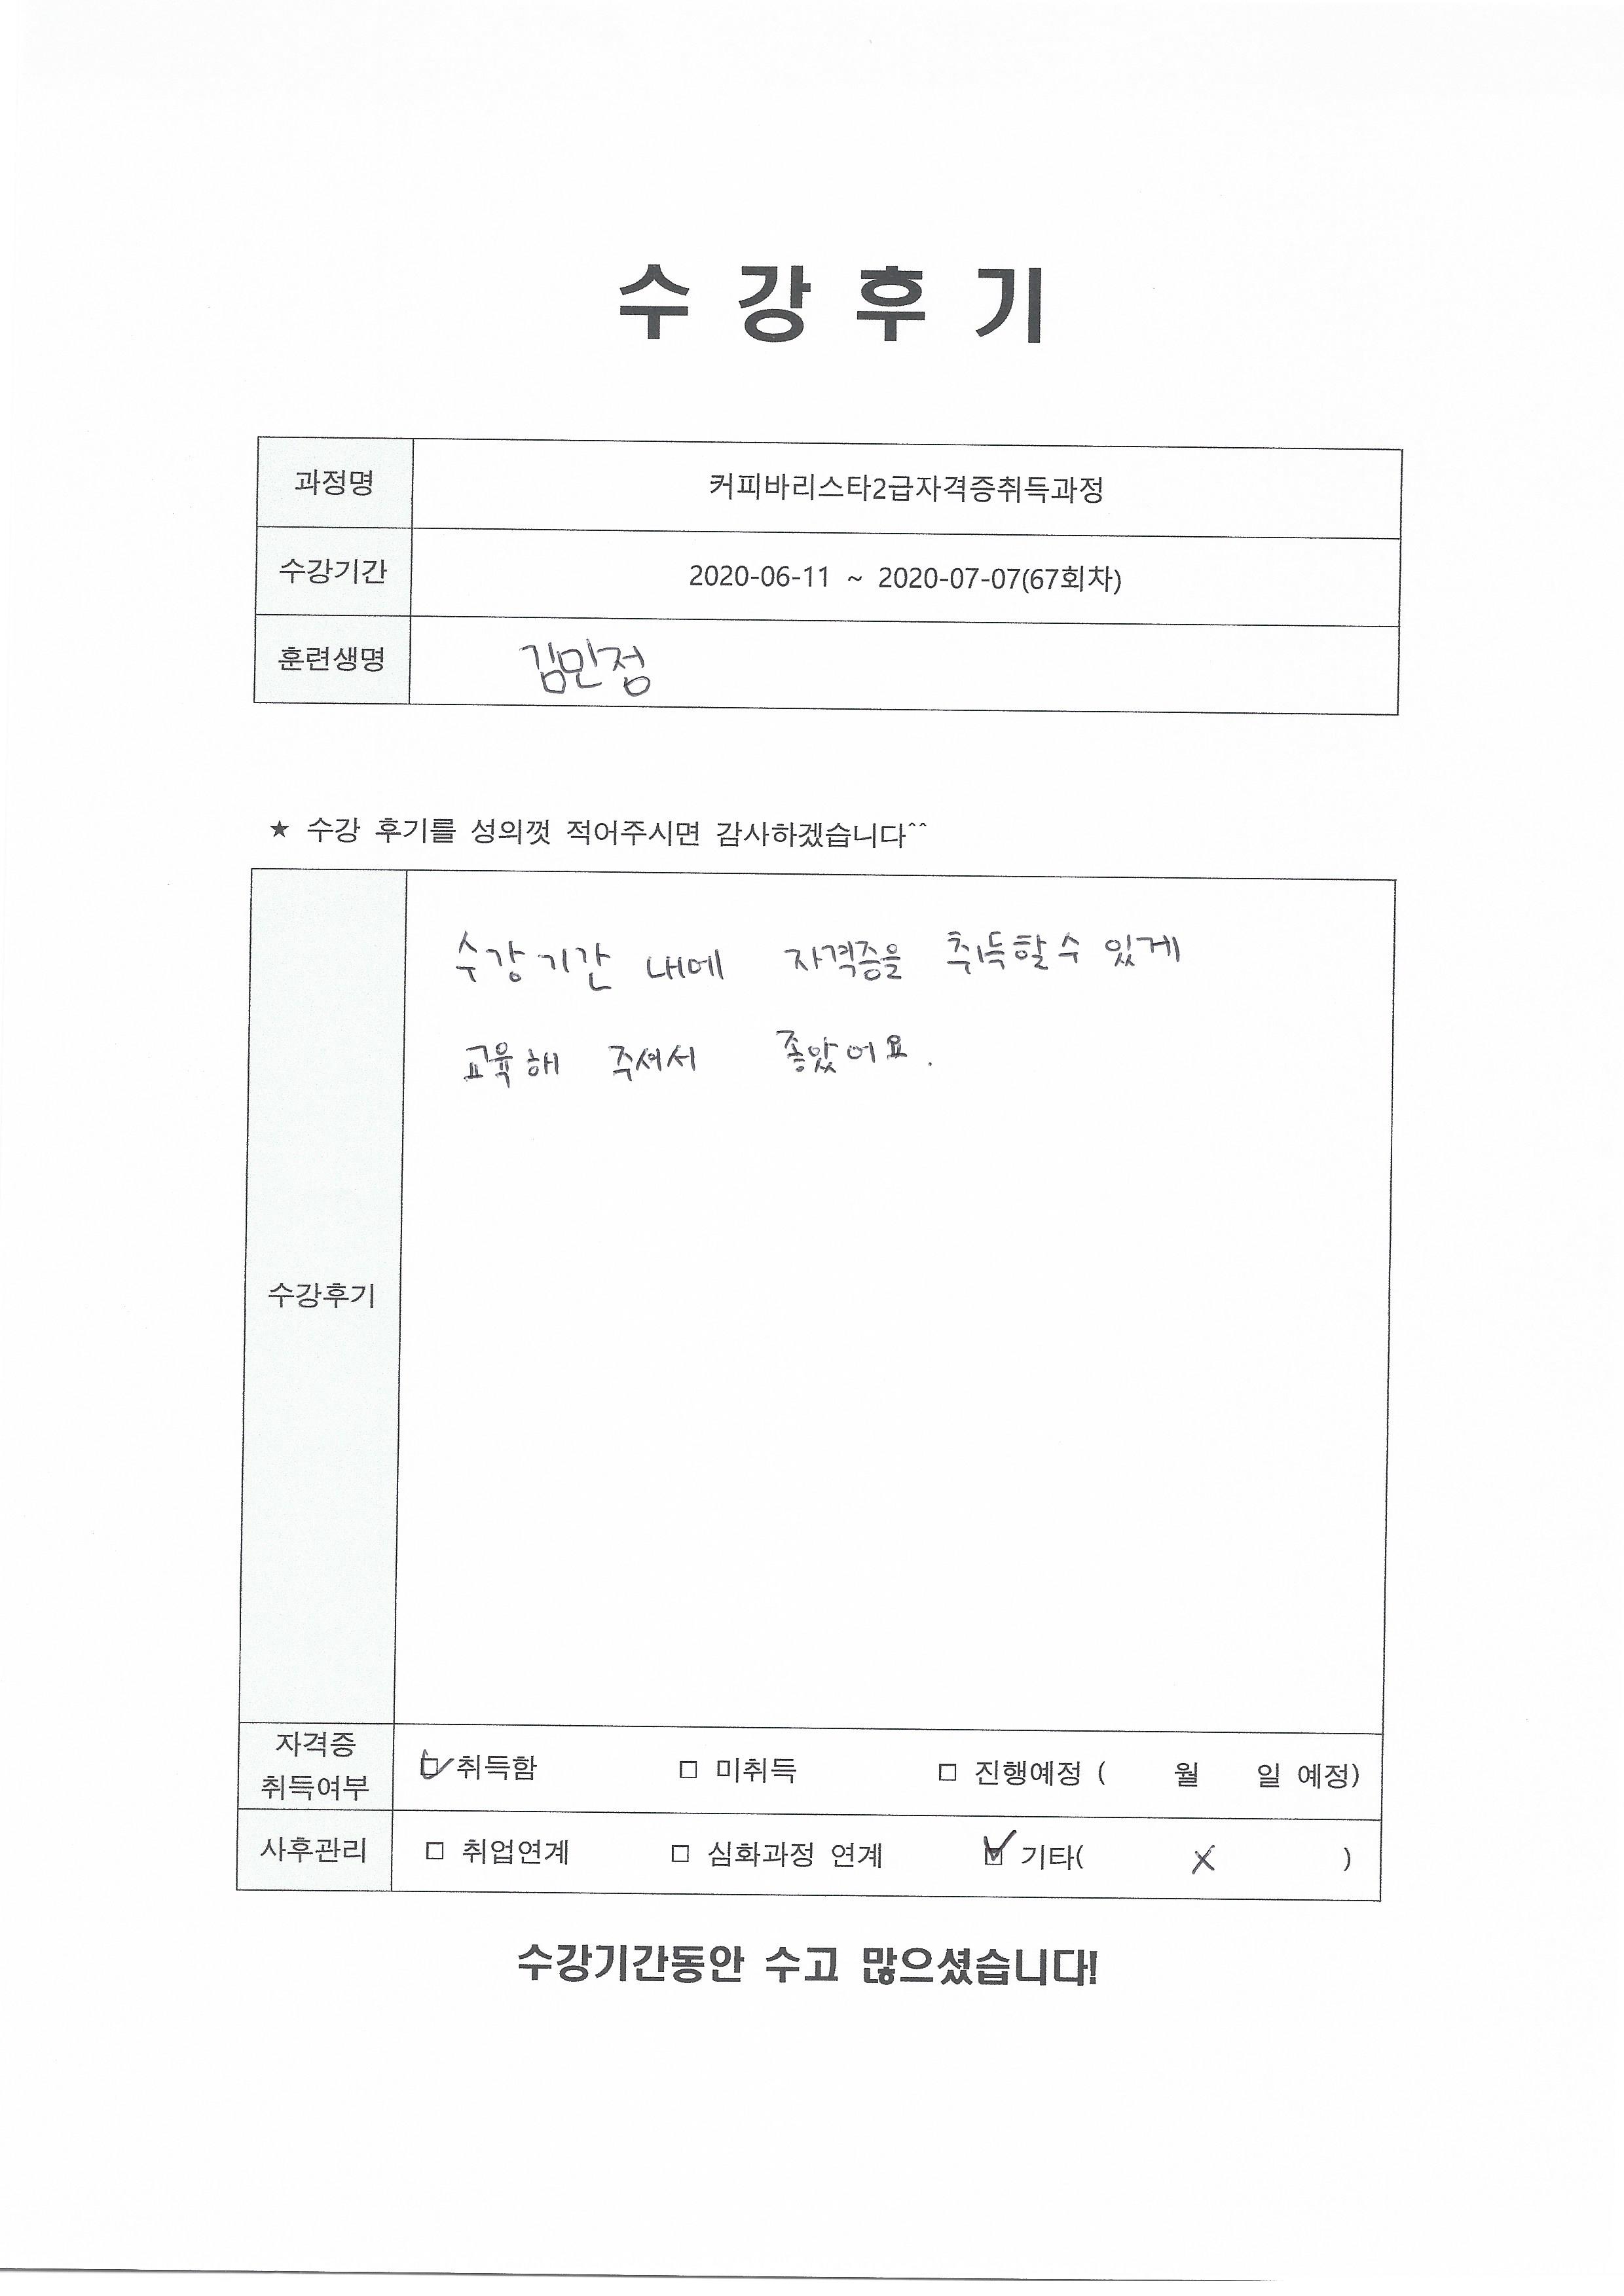 수 강 후 기
과정명 커피바리스타2급자격증취득과정
수강기간 2020-06-11 ~ 2020-07-07(67회차)
훈련생명 김민정
★ 수강 후기를 성의껏 적어주시면 감사하겠습니다^^
수강기간 내에 자격증을 취득할수 있게
교육해 주셔서 좋았어요.
수강후기
자격증
취득여부
☑ 취득함 □ 미취득 □ 진행예정 ( 월 일 예정)
사후관리 □ 취업연계 □ 심화과정 연계 ☑ 기타( X )
수강기간동안 수고 많으셨습니다!